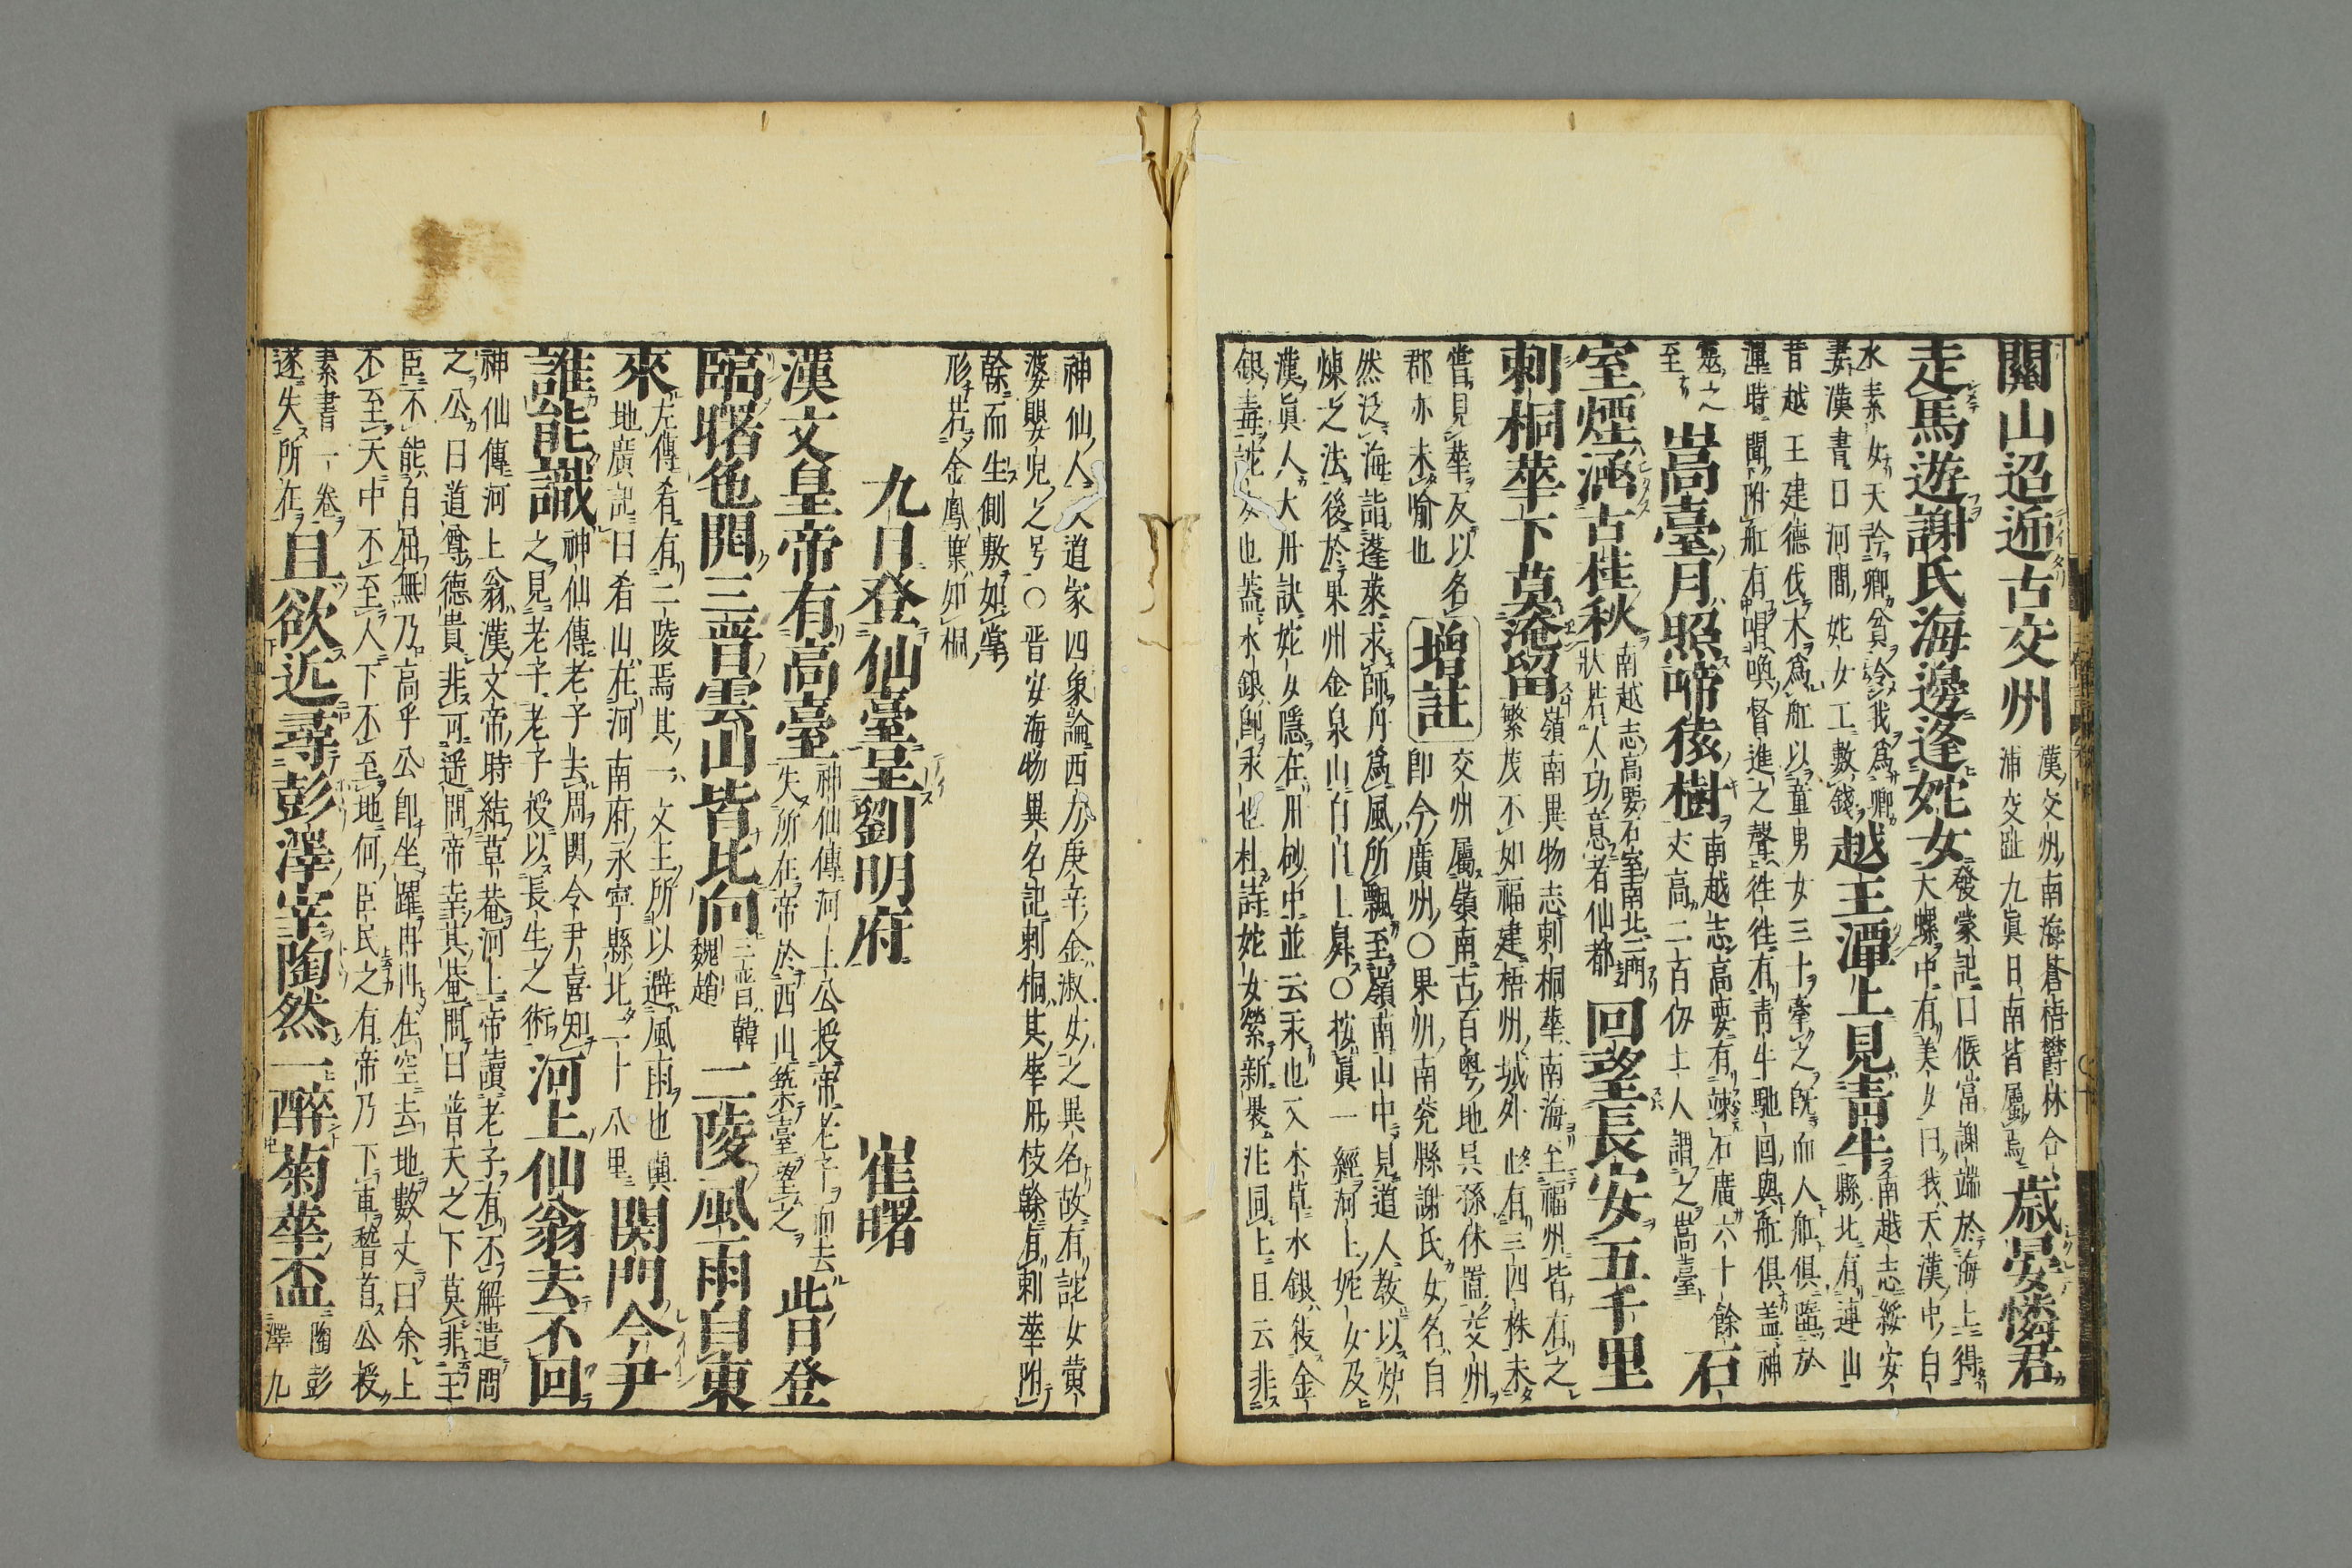 關山迢遞古交州
漢交州南海蒼梧欝林合
浦交趾九眞日南皆屬焉
歳晏憐君
走馬遊謝氏海邊逢姹女
發蒙記曰候當謝端於海上得
大螺中有美女曰我天漢中白
水素女天矜卿貧令我爲卿
妻漢書曰河間姹女工數錢
越王潭上見青牛
南越志綏安
縣北有連山
昔越王建德伐木爲舩以童男女三十牽之既而人舩俱墮於
潭時聞附舩有唱喚督進之聲往往有青牛馳回與舩俱蓋神
靈之
至
嵩臺月照啼猿樹
南越志高要有竦石廣六十餘
丈高二百仭土人謂之嵩臺
石
室煙涵古桂秋
南越志高要石室南北二門
狀若人功意者仙都
回望長安五千里
刺桐華下莫淹留
嶺南異物志刺桐華南海至福州皆有之
繁茂不如福建梧州城外此有三四株未
嘗見華反以名
郡亦未喻也
增註
交州屬嶺南古百粤地呉孫休置交州
即今廣州〇果州南充縣謝氏女名自
然泛海詣蓬萊求師舟爲風所飄至嶺南山中見道人教以炉
煉之法後於果州金泉山白日上昇〇按眞一經河上姹女及
漢眞人大丹訣姹女隱在丹砂中並云汞也入本草水銀後金
銀毒姹女也蓋水銀即汞也杜詩姹女縈新裹註同上且云非
神仙人又道家四象論西方庚辛金淑女之異名故有姹女黄
婆嬰兒之号〇晋安海物異名記刺桐其華丹枝幹有刺華附
幹而生側敷如掌
形若金鳳葉如桐
九日登仙臺呈劉明府
崔曙
漢文皇帝有高臺
神仙傳河上公授帝老子而去
失所在帝於西山築臺望之
此日登
臨曙色開三晋雲山皆北向
三晋韓
魏趙
二陵風雨自東
來
左傳肴有二陵焉其一文王所以避風雨也輿
地廣記曰肴山在河南府永寧縣北二十八里
関門令尹
誰能識
神仙傳老子去周関令尹喜知
之見老子老子授以長生之術
河上仙翁去不回
神仙傳河上翁漢文帝時結草菴河上帝讀老子有不解遣問
之公曰道尊德貴非可遥問帝幸其菴問曰普天之下莫非王
臣不能自屈無乃高乎公即坐躍冉冉在空去地數丈曰余上
不至天中不至人下不至地何臣民之有帝乃下車稽首公授
素書一卷
遂失所在
且欲近尋彭澤宰陶然一醉菊華盃
陶彭
澤九